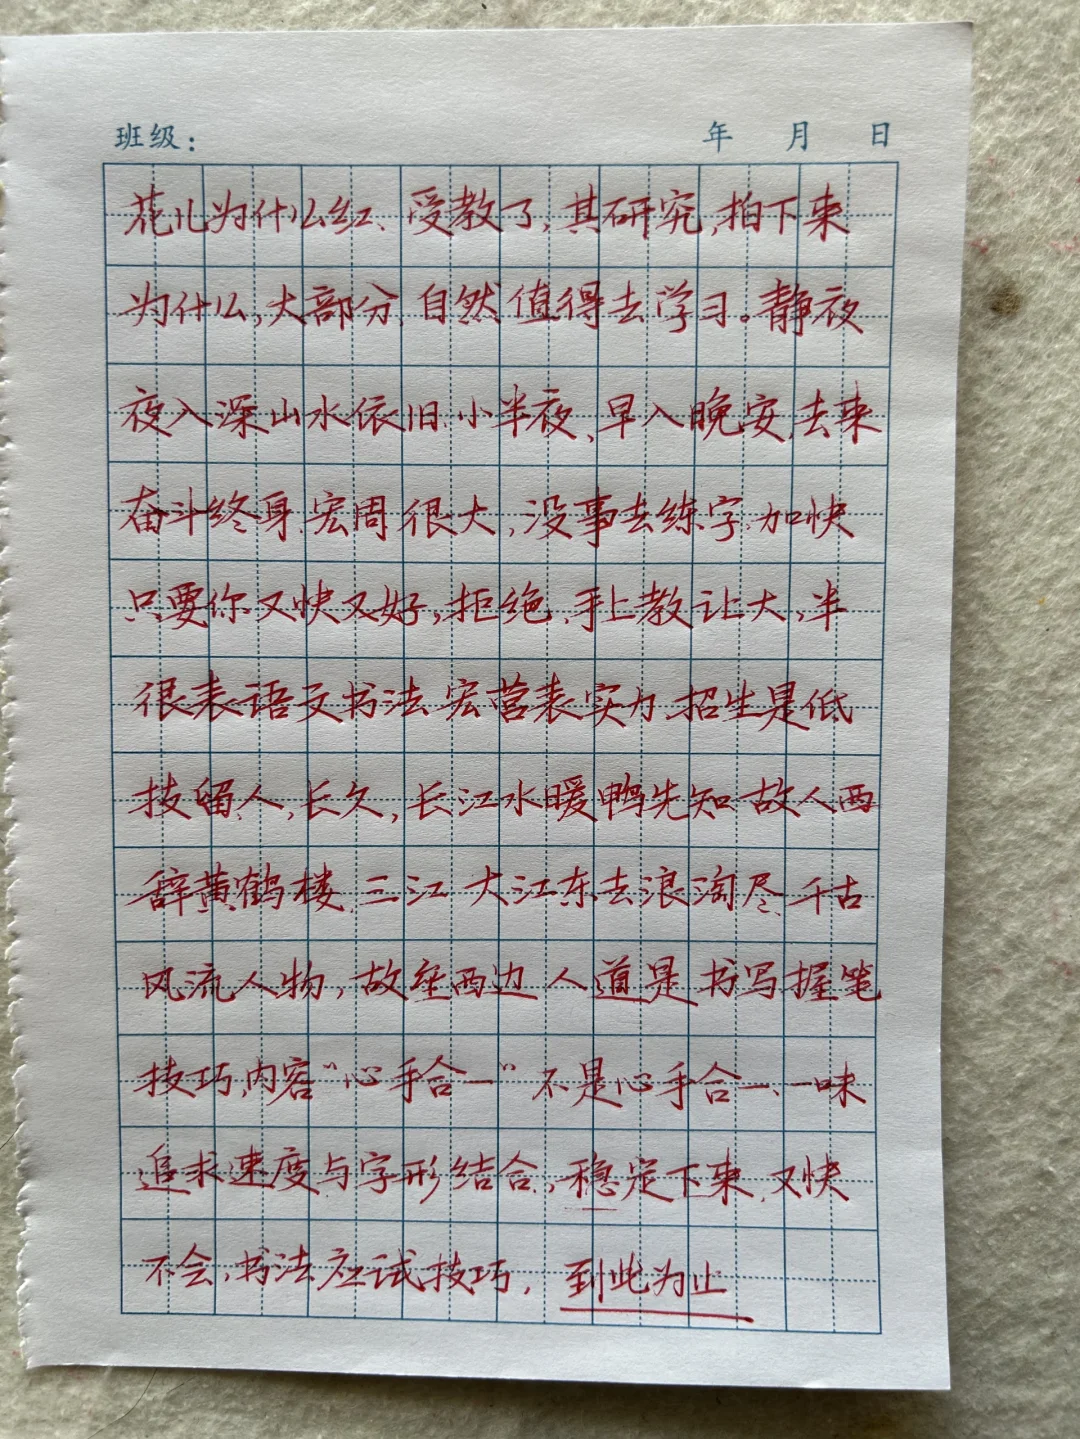 班级: 年 月 日
花儿为什么红、受教了,其研究,拍下来
为什么,大部分,自然值得去学习。静夜
夜入深山水依旧.小半夜,早入晚安,去来
奋斗终身.宏周很大,没事去练字,加快
只要你又快又好,拒绝,手上教让大,半
很表语文书法宏营表实力.招生是低
技留人,长久,长江水暖鸭先知故人西
辞黄鹤楼.三江 大江东去浪淘尽.千古
风流人物,故垒西边 人道是书写握笔
技巧,内容“心手合一”不是心手合一、一味
追求速度与字形结合,稳定下来,又快
不会,书法应试技巧,到此为止